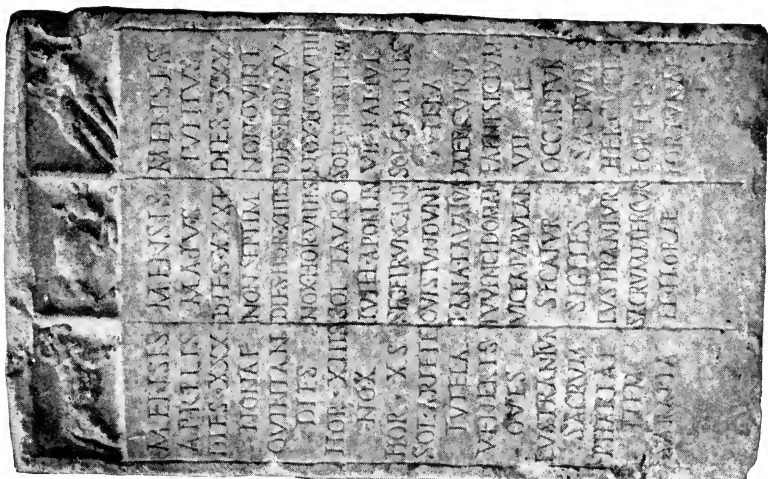 MENSIS
APRILIS
DIES·XXX
NONAE
QVINTAN
DIES
HOR·XIIIS
NOX
HOR·X S
SOL·ARIETE
TVTELA
VENERIS
OVES
LVSTRANTVR
SACRVM
PHARIAE
ITEM
SARAPIA
MENSIS
MAIVS
DIES·XXXI
NON·SEPTIM
DIES·HOR·XIIIIS
NOX·HOR·VIIIIS
SOL·TAVRO
TVTELA·APOLLIN
SEGET·RVNCANT
OVES·TONDENT
LANA·LAVATVR
IVVENCI·DOMANT
VICEA·PABVLAR
SECATVR
SEGETES
LVSTRANTVR
SACRVM·MERCVR
ET·FLORAE
MENSIS
IVNIVS
DIES·XXX
NON·QVINT
DIES·HOR·XV
NOX·HOR·VIIII
SOLIS·INSTITIVM
VIII·KAL·IVL
SOL·GEMINIS
TVTELA
MERCVRI
FAENISICIVM
OCCANTVR
SACRVM
HERCVLI
FORTIS
FORTVNAE